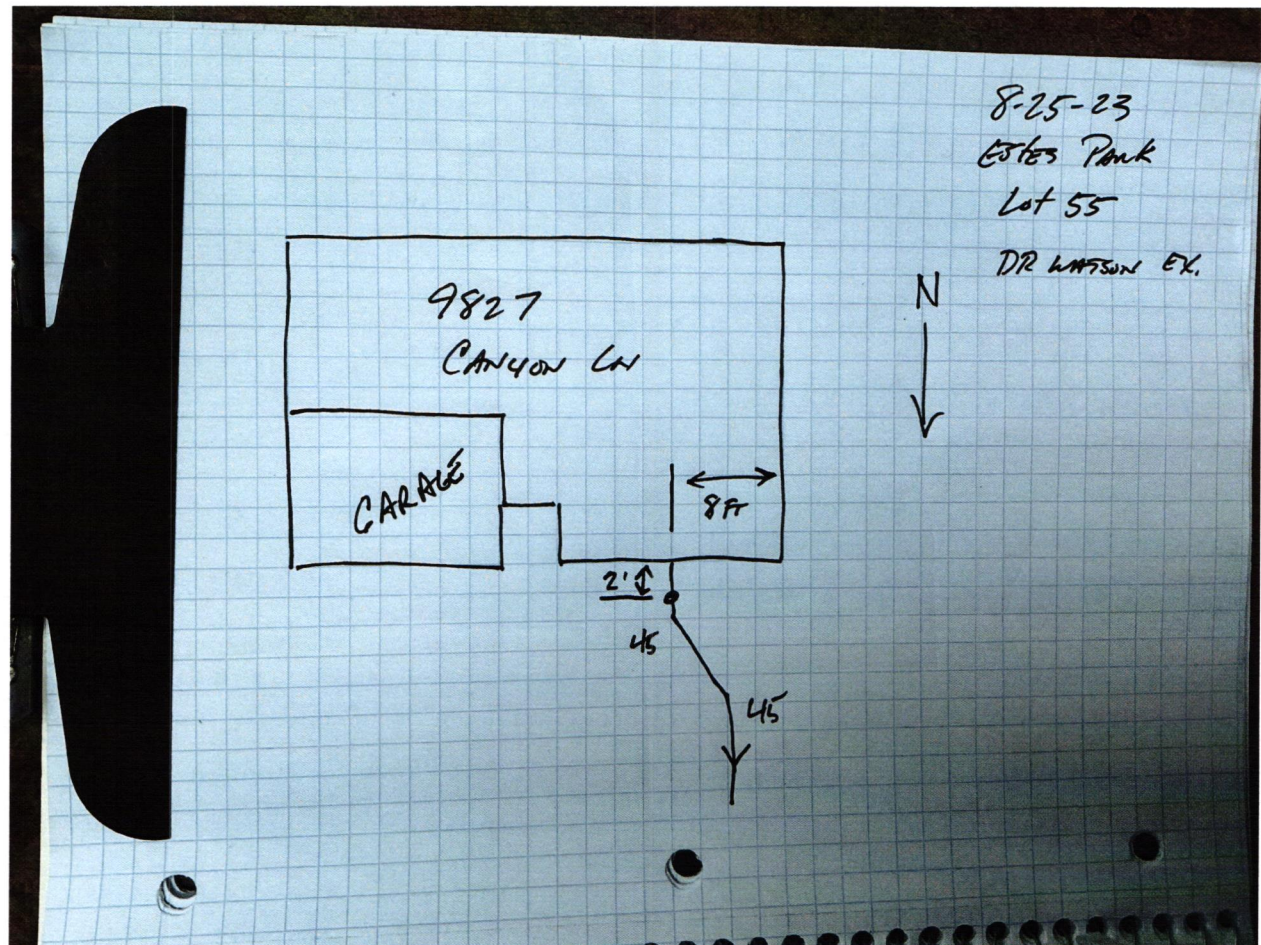 8-25-23
Estes Park
Lot 55
DR WATSON EX.
N
9827
CANYON LN
GARAGE
8 FT
2'
45
45